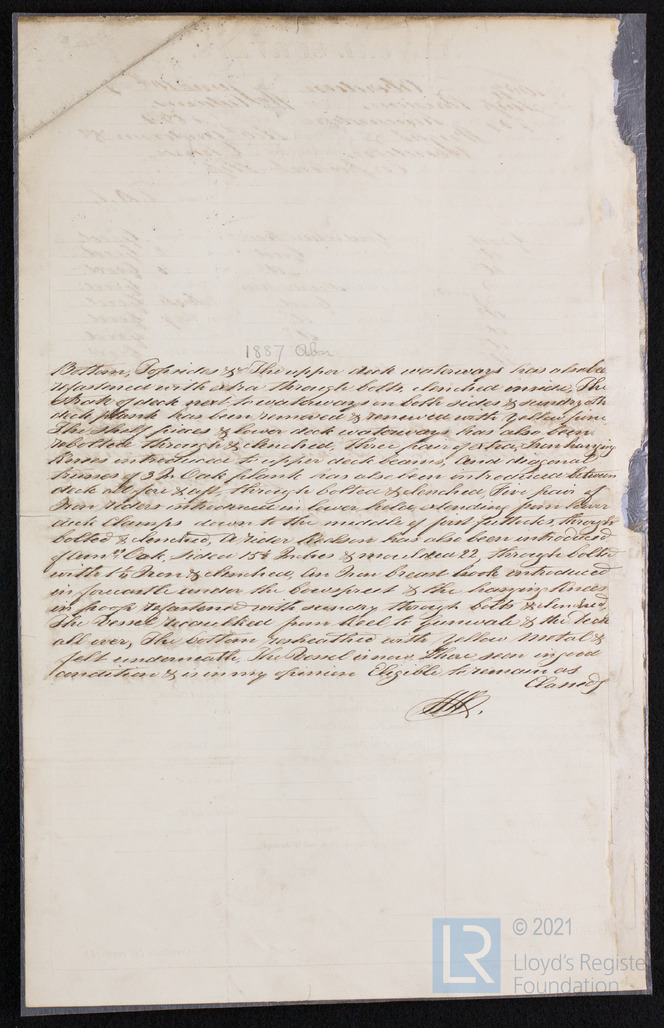 1887 Abn
Bottom, Topsides &c The upper deck waterways has also be
refastened with extra through bolts clenched inside, The
strake of deck next to waterways on both sides & sundry oth
deck plank has been removed & renewed with Yellow pine
The shelf pieces & lower deck waterways has also been
rebolted through & clenched, three pair of extra Iron hanging
Knees introduced to upper deck beams, and diagonal
trusses of 3 In Oak plank has also been introduced between
deck all fore & aft, through bolted & clenched, Five pair of
Iron riders introduced in lower hold extending from lower
deck clamps down to the middle of first futtocks, through
bolted & clenched, A rider Keelson has also been introduced
of Amn Oak, sided 15½ Inches & moulded 22, through bolted
with 1⅛ Iron & clenched, An Iron breast hook introduced
in forecastle under the bowsprit & the hanging Knees
in poop refastened with sundry through bolts & clenched,
The Vessel recaulked from Keel to gunwale & the deck
all over, The bottom resheathed with Yellow Metal &
felt underneath, The Vessel is now I have seen in good
condition & is in my opinion Eligible to remain as
Classed
© 2021
LR
Lloyd's Registe
Foundation